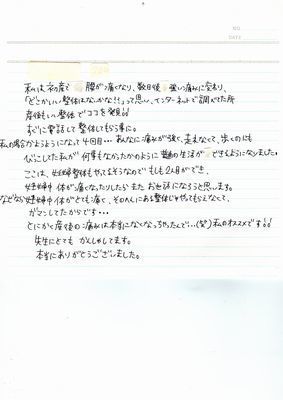 NO.
DATE
私は初産で 腰が痛くなり、数日後 強い痛みに変わり、
「どこかいい整体はないかな!!」って思い、インターネットで調べてた所
産後もいい整体でココを発見!!
すぐに電話して整体してもらう事に。
私の場合かようようになって4回目… あんなに痛みが強く、走れなくて、歩くのにも
していた私が 何事もなかったかのように 普通の生活が できるようになりました。
ここは、妊婦整体もやってるそうなので もしも2人目ができ
妊娠中 体が痛くなったりしたら またお世話になろうと思います。
なぜなら妊娠中体がとても痛く、そのへんにある整体じゃやってもらえなくて、
ガマンしてたからです…
とにかく産後の痛みは本当になくなっちゃったんで…(笑)私のオススメです!!
先生にとても かんしゃしてます。
本当にありがとうございました。